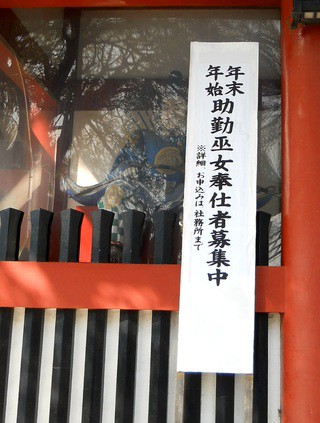 年末年始助勤巫女奉仕者募集中
※詳細、お申込みは社務所まで